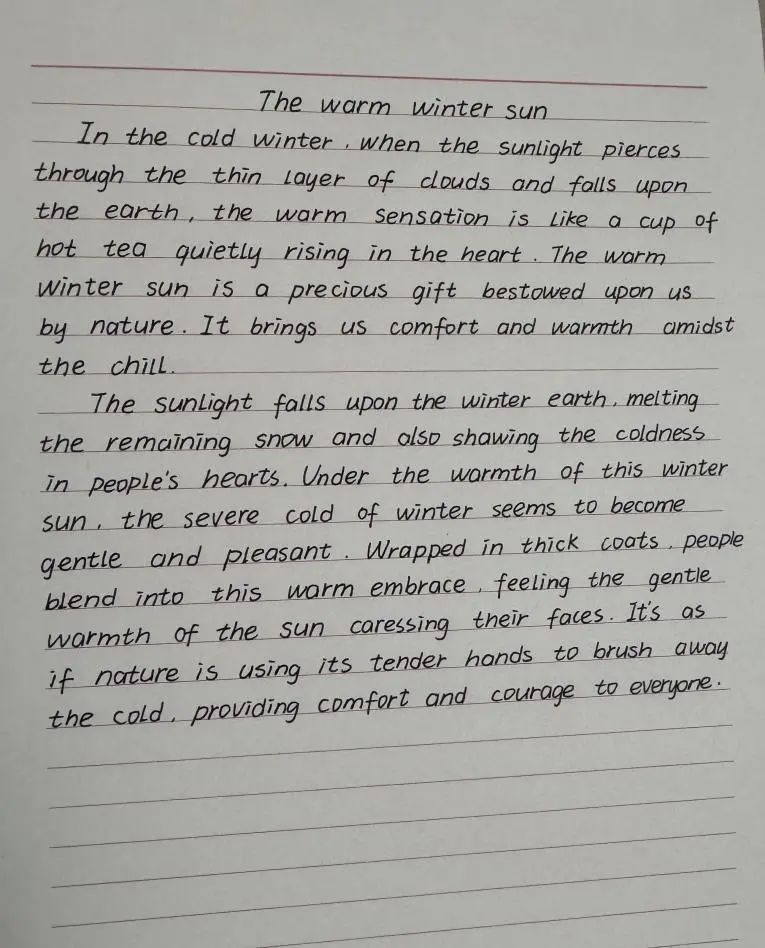 The warm winter sun
In the cold winter, when the sunlight pierces
through the thin layer of clouds and falls upon
the earth, the warm sensation is like a cup of
hot tea quietly rising in the heart. The warm
winter sun is a precious gift bestowed upon us
by nature. It brings us comfort and warmth amidst
the chill.
The sunlight falls upon the winter earth, melting
the remaining snow and also shawing the coldness
in people's hearts. Under the warmth of this winter
sun, the severe cold of winter seems to become
gentle and pleasant. Wrapped in thick coats, people
blend into this warm embrace, feeling the gentle
warmth of the sun caressing their faces. It's as
if nature is using its tender hands to brush away
the cold, providing comfort and courage to everyone.